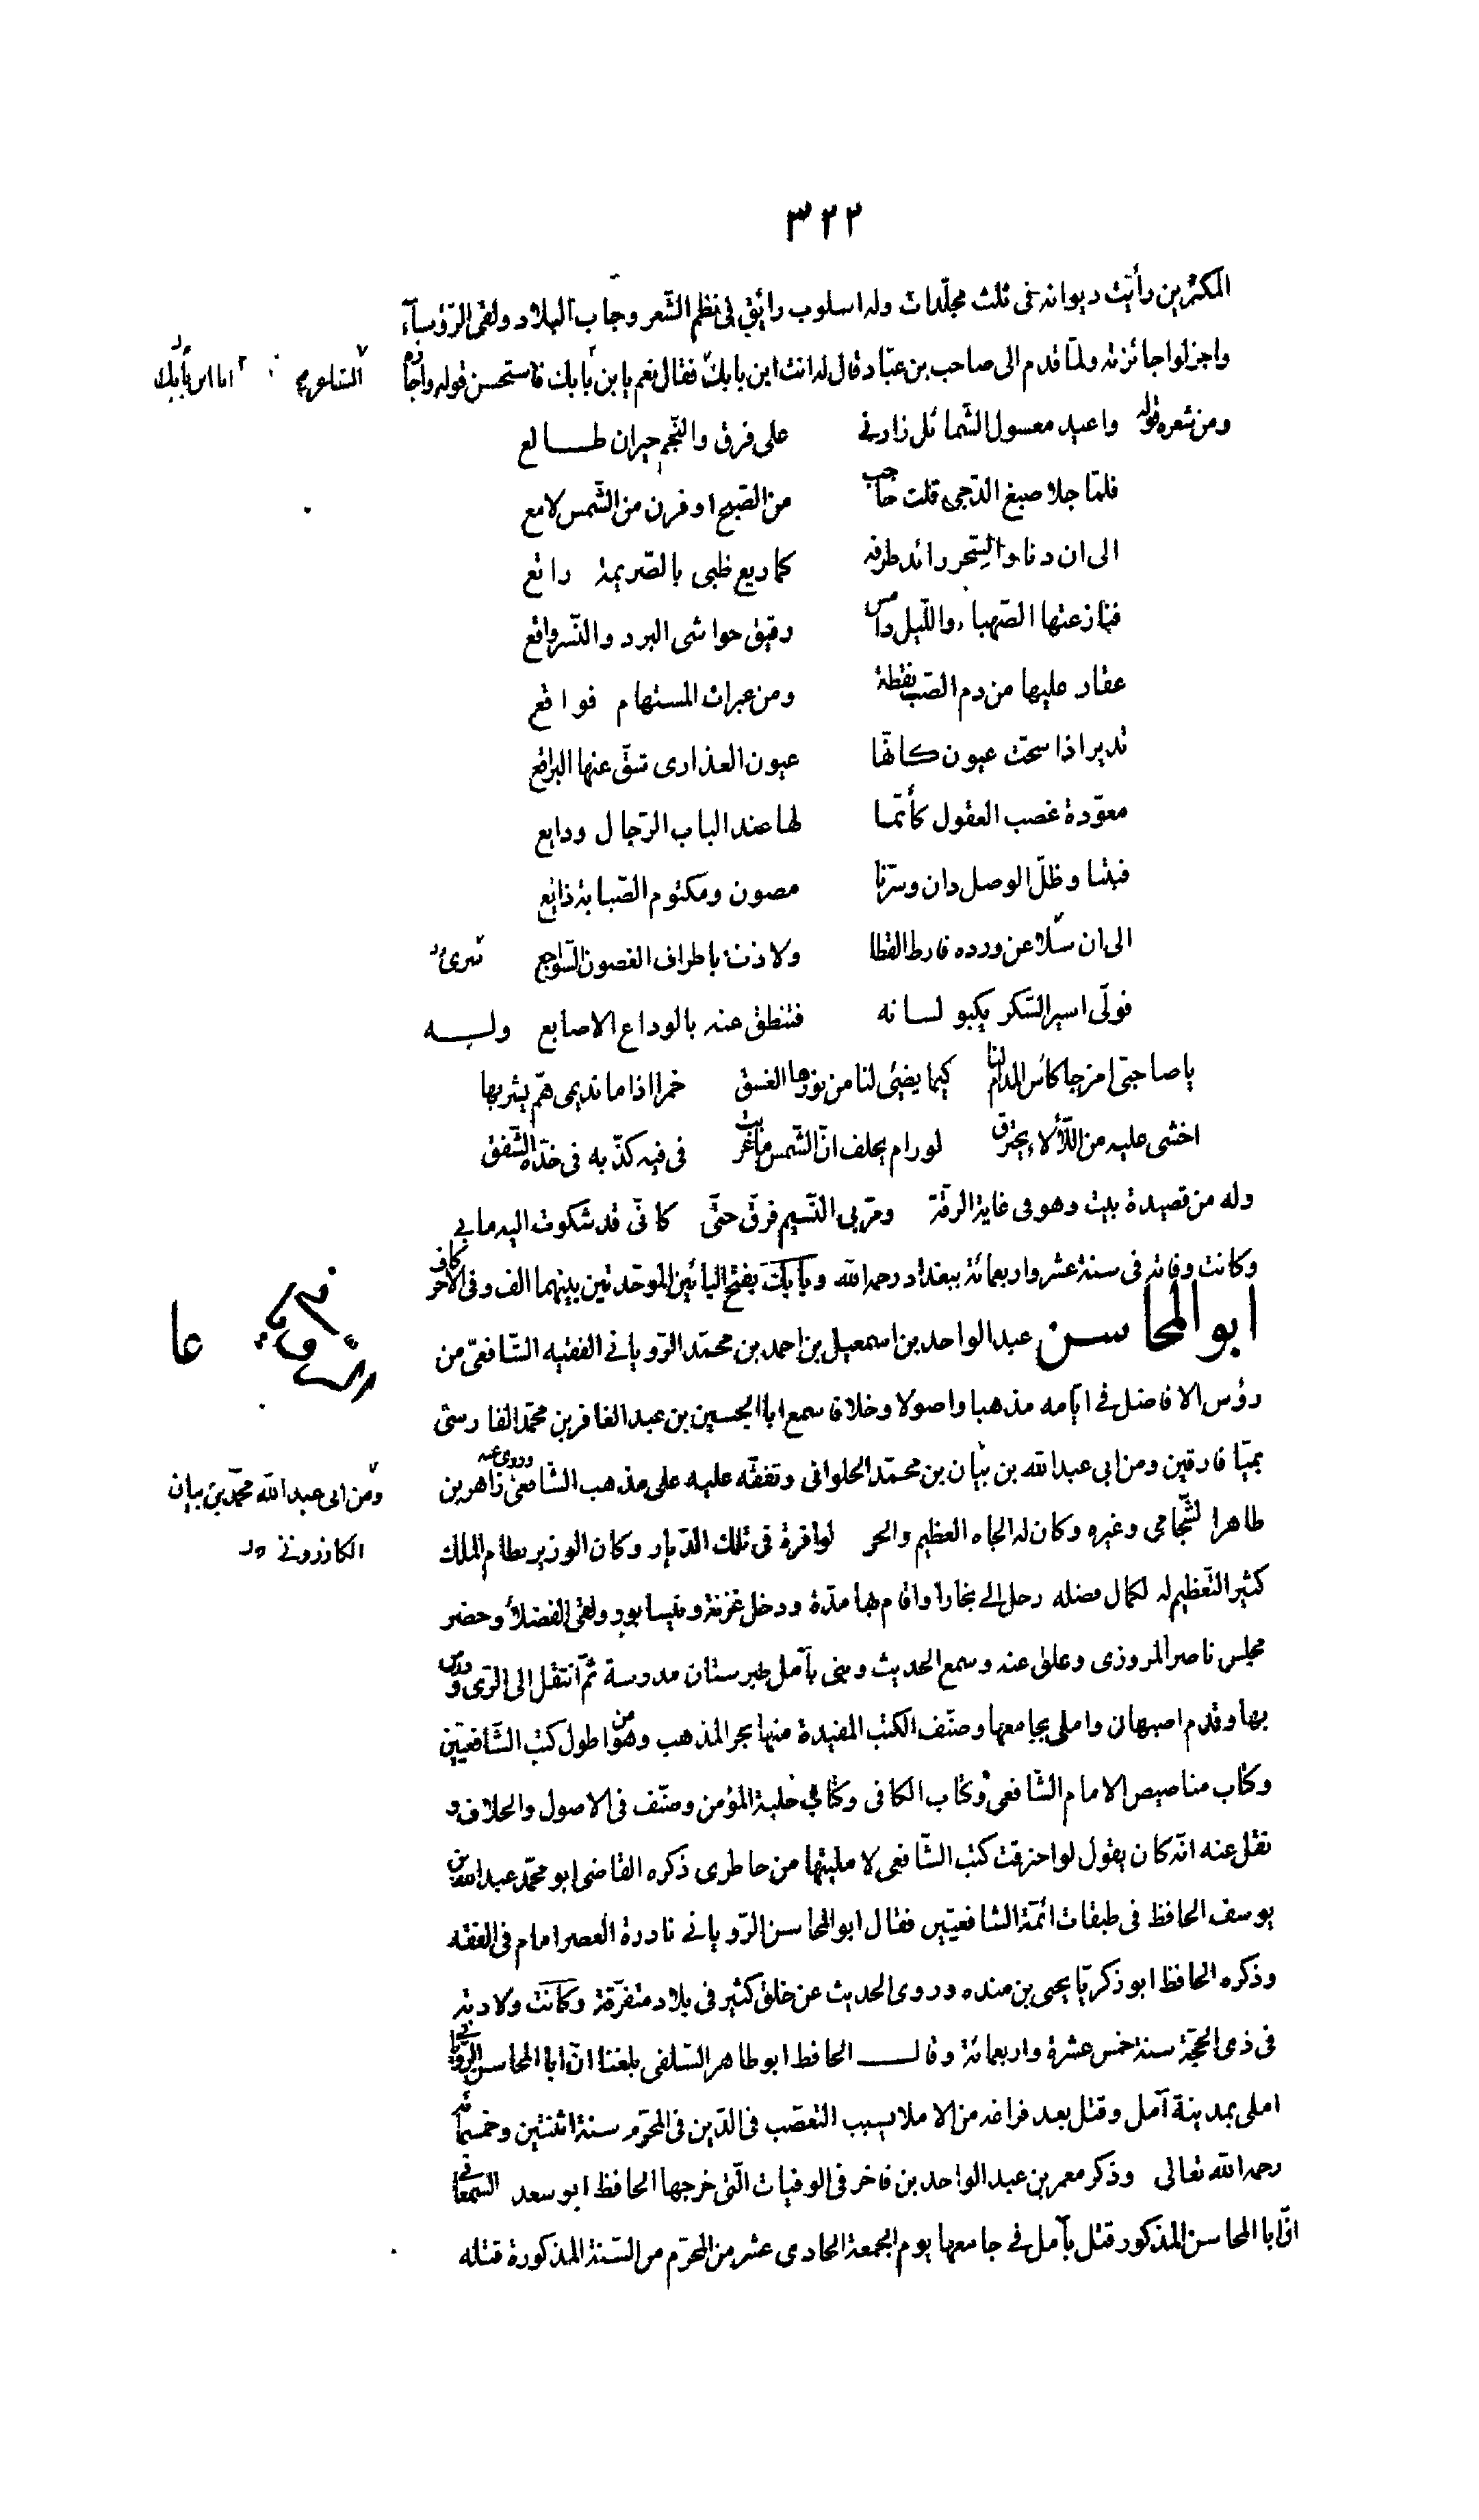 ٣٢٢
المكثرين رأيت ديوانه فى ثلث مجلّدات وله اسلوب رائق فى نظم الشّعر وجاب البلاد ولقى الرّؤسآء
واجزلوا جائزته ولمّا قدم الى صاحب بن عبّاد قال له انت ابن بابك فقال نعم يا بن بابك فاستحسن قوله واجازه
الشاعر انا ابن بابك
ومن شعره قوله واغيد معسول الشّمائل زارنى على فرق والنّجم حيران طالع
فلمّا جلا صبغ الدّجى قلت حاجب من الصّبح او قرن من الشّمس لامع
الى ان دنا والسّحر رائد طرفه كما ريع ظبى بالصّريمة راتع
فنازعتها الصّهباء والليل دامس رقيق حواشى البرد والنّسر واقع
عقار عليها من دم الصّب نقطة ومن عبرات المستهام فواقع
تدير اذا سحّت عيون كانّها عيون العذارى شقّ عنها البراقع
معوّدة غصب العقول كأنّما لها عند الباب الرّجال ودايع
فبتنا وظلّ الوصل دان وسرّنا مصون ومكتوم الصّبابة ذائع
الى ان سلا عن ورده فارط القطا ولاذت باطراف الغصون السّواجع
فولّى اسير السّكر يكبو لسانه فتنطق عنه بالوداع الاصابع وله
يا صاحبىّ امزجا كاس المدام لنا كيما يضيئ لنا من نورها الغسق خمرا اذا ما نديمى همّ يشربها
اخشى عليه من اللّألاء يحترق لو رام يحلف انّ الشّمس ما غربت فى فيه كذّبه فى خدّه الشّفق
وله من قصيدة بيت وهو فى غاية الرقّة ومرّ بى النّسيم فرقّ حتّى كانّى قد شكوت اليه مابى
وكانت وفاته فى سنة عشر واربعمائة ببغداد رحمه الله وبابك بفتح البائين الموحّدتين بينهما الف وفى الآخر كاف
ابو المحاسن عبد الواحد بن اسمعيل بن احمد بن محمّد الرّويانى الفقيه الشّافعىّ من
رؤس الافاضل فى ايّامه مذهبا واصولا وخلافا سمع ابا الحسين بن عبد الغافر بن محمّد الفارسىّ
بميّافارقين ومن ابى عبد الله بن بيان بن محمّد الحلوانى وتفقّه عليه على مذهب الشّافعى وروى عنه زاهر بن
ومن ابى عبد الله محمّد بن بيان
الكازرونى
طاهر الشّحامى وغيره وكان له الجاه العظيم والحر لوافرة فى تلك الدّيار وكان الوزير نظام الملك
كثير التّعظيم له لكمال فضله رحل الى بخارا واقام بها مدّة ودخل غزنة ونيسابور ولقى الفضلأ وحضر
مجلس ناصر المروزى وعلق عنه وسمع الحديث وبنى بآمل طبرستان مدرسة ثمّ انتقل الى الرّى ودرس
بها وقدم اصبهان واملى بجامعها وصنّف الكتب المفيدة منها بحر المذهب وهو من اطول كتب الشّافعيّين
وكتاب مناصيص الامام الشّافعى وكتاب الكافى وكتاب حلية المؤمن وصنّف فى الاصول والخلاف و
نقل عنه انّه كان يقول لو احترقت كتب الشّافعى لامليتها من خاطرى ذكره القاضى ابو محمّد عبد الله بن
يوسف الحافظ فى طبقات ائمّة الشافعيّين فقال ابو المحاسن الرّويانى نادرة العصر امام فى الفقه
وذكره الحافظ ابو ذكريّا يحيى بن منده وروى الحديث عن خلق كثير فى بلاد متفرّقة وكانت ولادته
فى ذى الحجّة سنة خمس عشرة واربعمائة وقال الحافظ ابو طاهر السّلفى بلغنا انّ ابا المحاسن الرّويانى
املى بمدينة آمل وقتل بعد فراغه من الاملا بسبب التعصّب فى الدّين فى المحرّم سنة اثنتين وخمسمائة
رحمه الله تعالى وذكر معمر بن عبد الواحد بن فاخر فى الوفيات الّتى خرجها الحافظ ابو سعد السّمعانى
انّ ابا المحاسن المذكور قتل بآمل فى جامعها يوم الجمعة الحادى عشر من المحرّم من السّنة المذكورة قتله